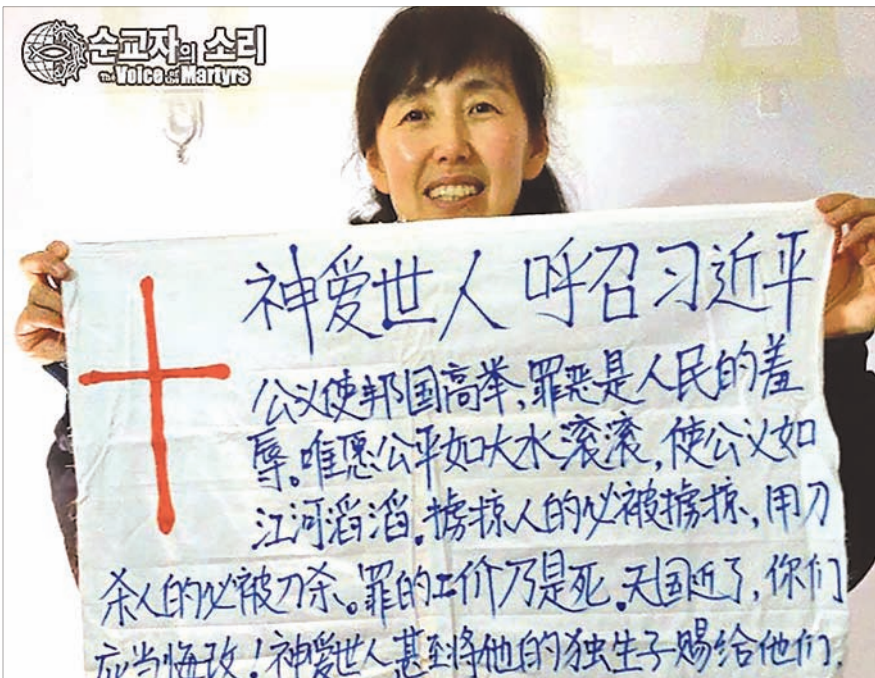 순교자의 소리
The Voice of the Martyrs
神爱世人 呼召习近平
公义使邦国高举,罪恶是人民的羞
辱。唯愿公平如大水滚滚,使公义如
江河滔滔。掳掠人的必被掳掠,用刀
杀人的必被刀杀。罪的工价乃是死。天国近了,你们
应当悔改!神爱世人甚至将他的独生子赐给他们.